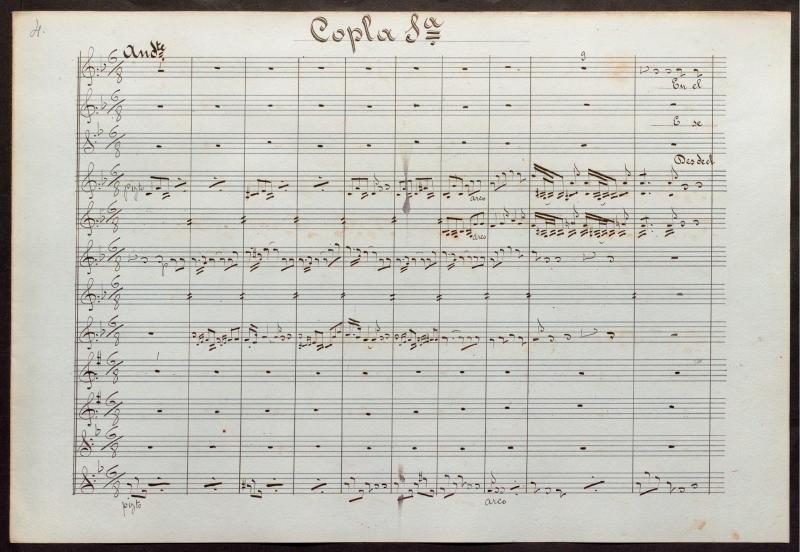 4.
Copla 1ª
Andte
6/8
9
En el
E se
Desdeel
pizto
arco
arco
pizto
arco